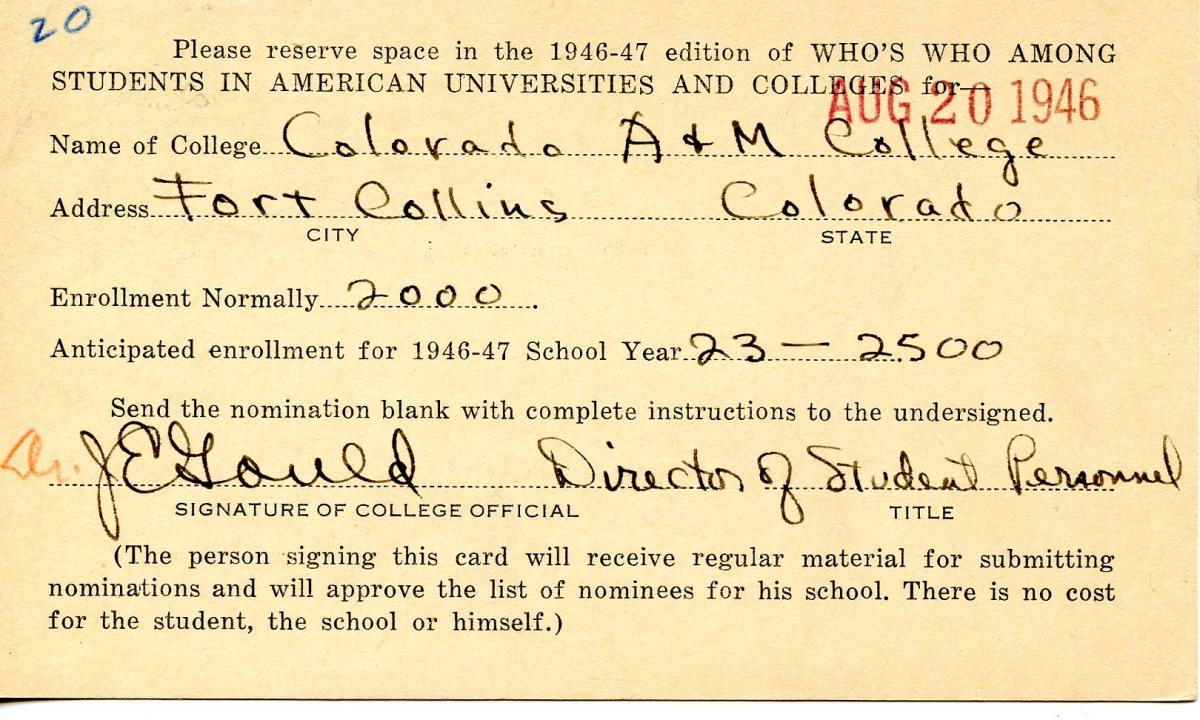 20
Please reserve space in the 1946-47 edition of WHO'S WHO AMONG
STUDENTS IN AMERICAN UNIVERSITIES AND COLLEGES for—
AUG 20 1946
Name of College Colorado A & M College
Address Fort Collins Colorado
CITY STATE
Enrollment Normally 2000.
Anticipated enrollment for 1946-47 School Year 23 — 2500
Send the nomination blank with complete instructions to the undersigned.
Dr. J E Gould Director of Student Personnel
SIGNATURE OF COLLEGE OFFICIAL TITLE
(The person signing this card will receive regular material for submitting
nominations and will approve the list of nominees for his school. There is no cost
for the student, the school or himself.)